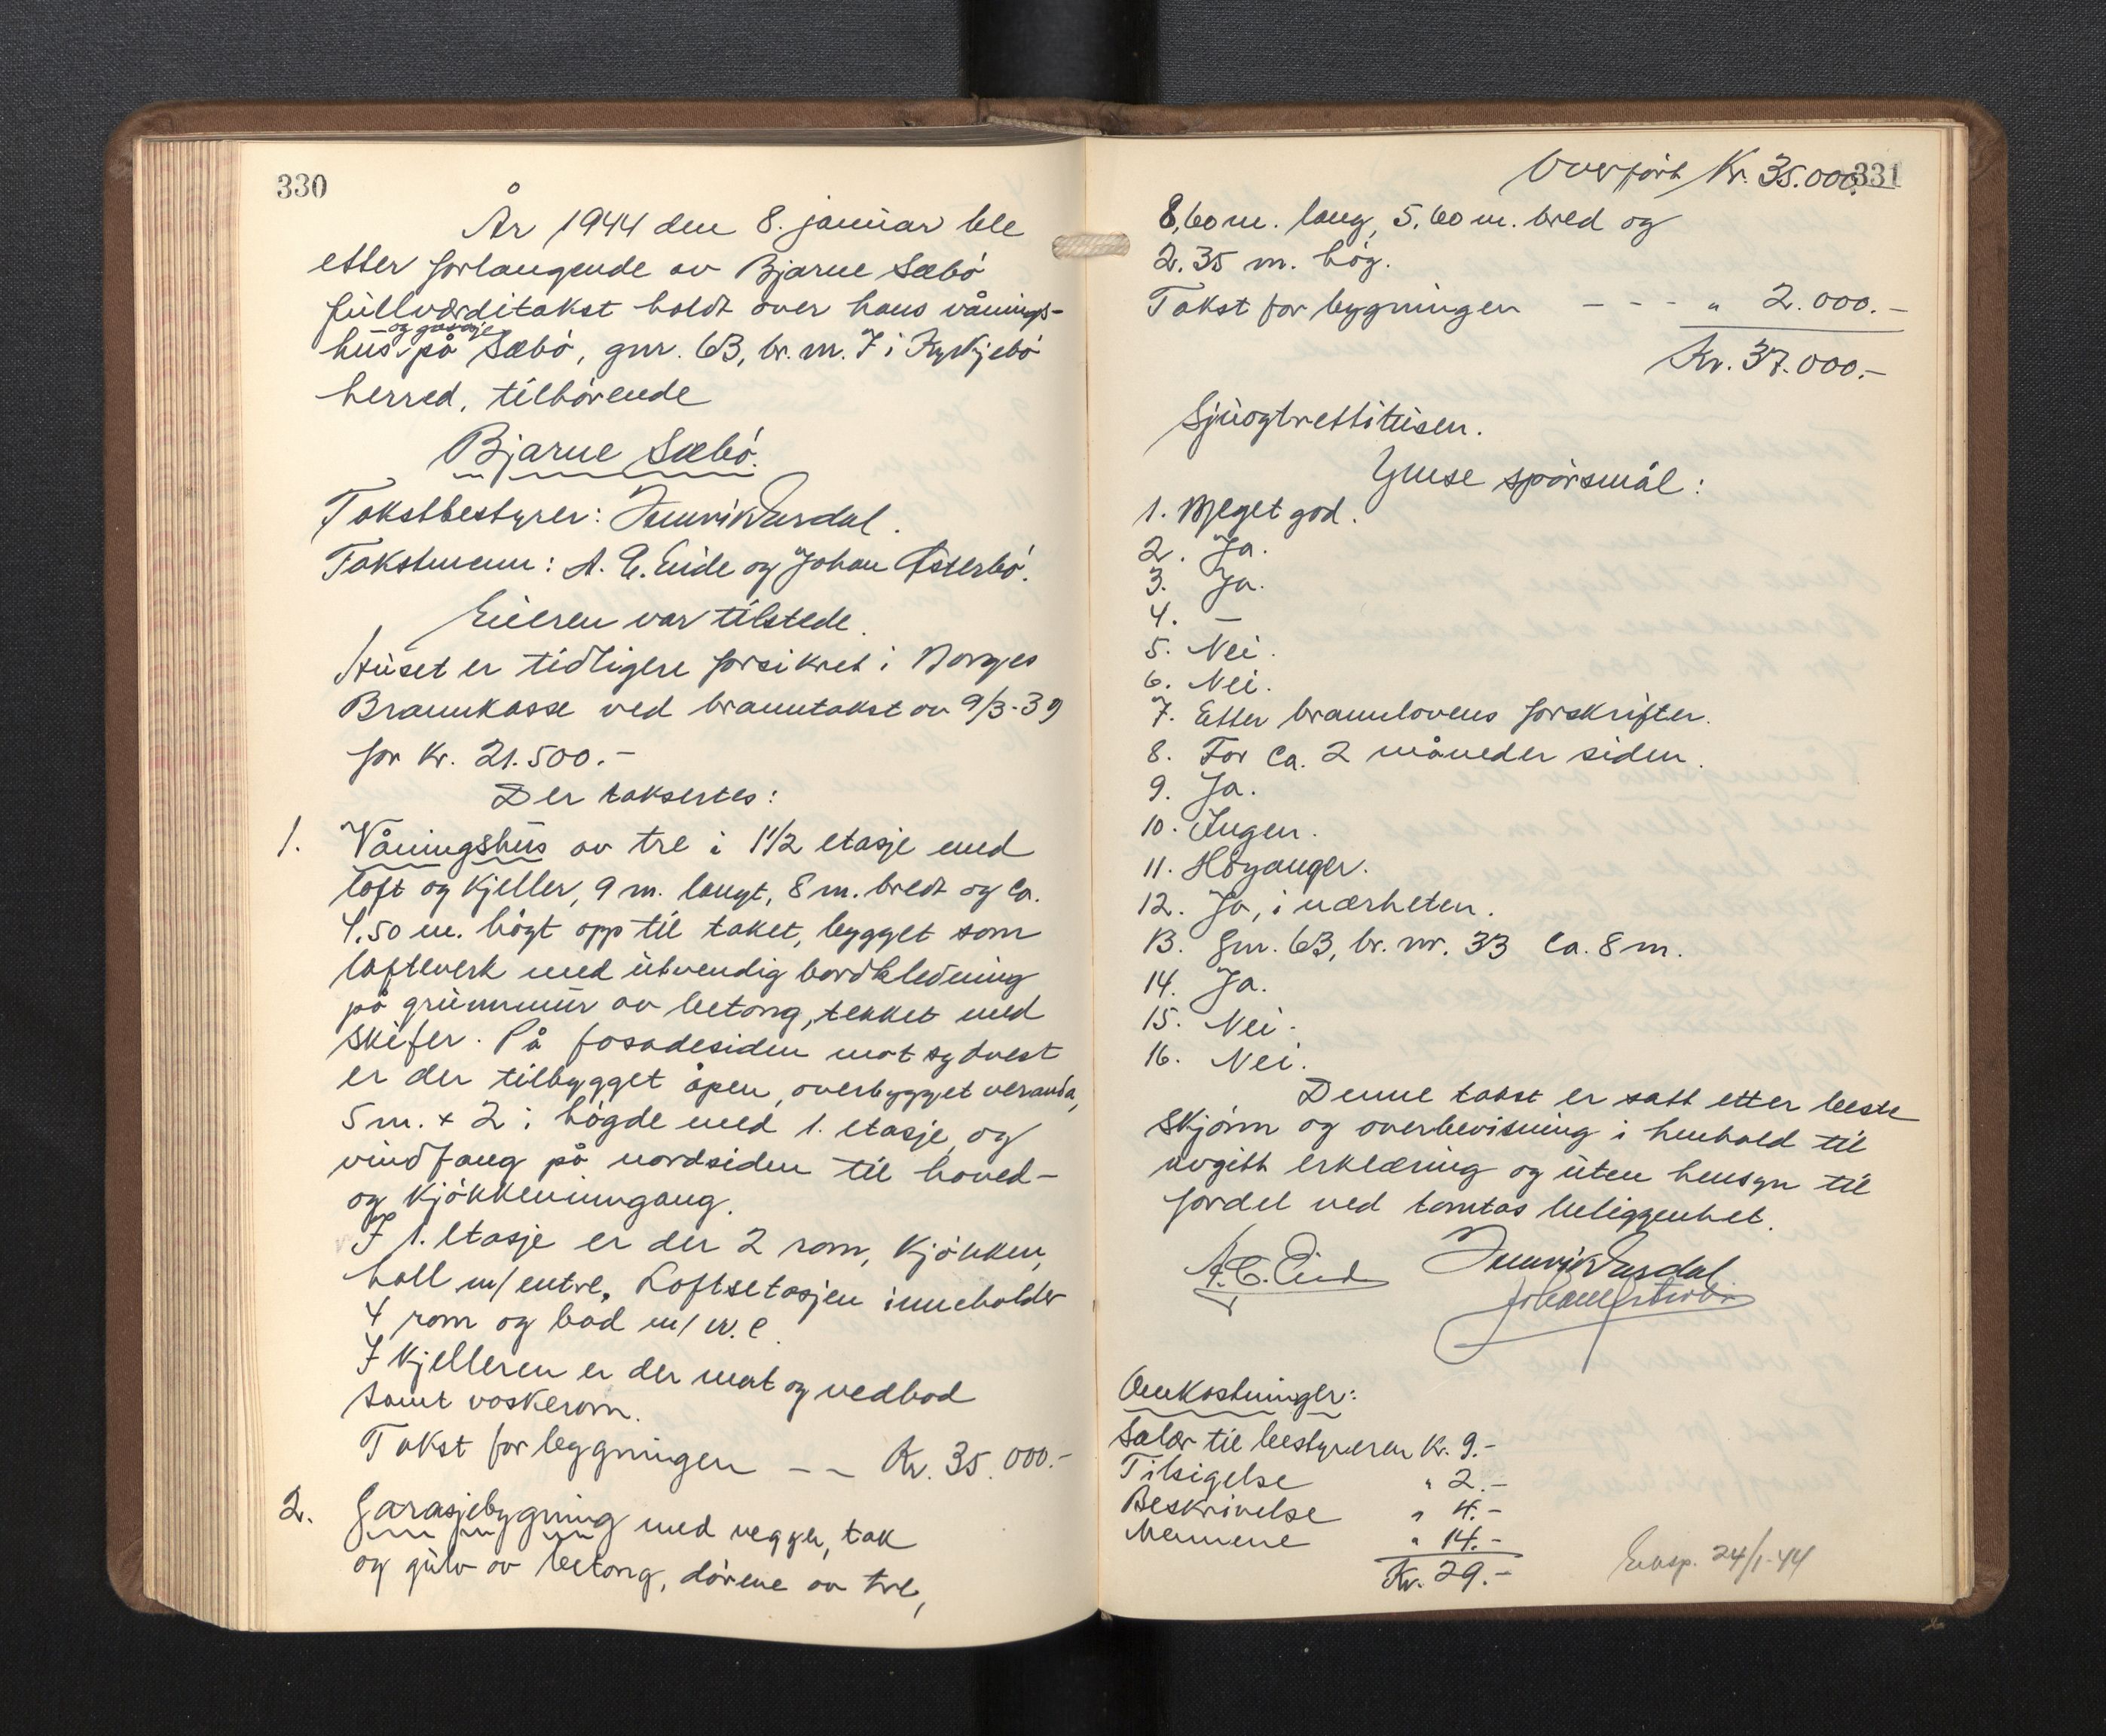 330
År 1944 den 8. januar ble
etter forlangende av Bjarne Sæbö
fullværditakst holdt over hans vånings-
og garasje
hus på Sæbö, gnr. 63, br. nr. 7 i Kyrkjebö
herred, tilhörende
Bjarne Sæbö.
Takstbestyrer: Henrik
Takstmenn: A. E. Eide og Johan Østerbö.
Eieren var tilstede.
Huset er tidligere forsikret i Norges
Brannkasse ved branntakst av 9/3-39
for Kr. 21.500.-
Der taksertes:
1. Våningshus av tre i 1 1/2 etasje med
loft og kjeller, 9 m. langt, 8 m. bredt og ca.
4.50 m. högt opp til taket, bygget som
lafteverk med utvendig bordkledning
på grunnmur av betong, tekket med
skifer. På fasadesiden mot sydvest
er der tilbygget åpen, overbygget veranda,
5 m. x 2 i högde med 1. etasje, og
vindfang på nordsiden til hoved-
og kjökkeninngang.
I 1. etasje er der 2 rom, kjökken,
hall m/ entre. Loftsetasjen inneholder
4 rom og bad m/ w.c.
I kjelleren er der mat og vedbod
samt vaskerom.
Takst for bygningen — — Kr. 35.000.-
2. Garasjebygning med vegger, tak
og gulv av betong, dörene av tre,
Overfört Kr. 35.000.-
331
8,60 m. lang, 5.60 m. bred og
2.35 m. hög.
Takst for bygningen - - - " 2.000.-
Kr. 37.000.-
Sjuogtrettitusen.
Ymse spörsmål:
1. Meget god.
2. Ja.
3. Ja.
4. —
5. Nei.
6. Nei.
7. Etter brannlovens forskrifter.
8. For ca. 2 måneder siden.
9. Ja.
10. Ingen.
11. Höyanger.
12. Ja, i nærheten.
13. Gnr. 63, br. nr. 33 ca. 8 m.
14. Ja.
15. Nei.
16. Nei.
Denne takst er satt etter beste
skjönn og overbevisning i henhold til
avgitt erklæring og uten hensyn til
fordel ved tomtas beliggenhet.
A. E. Eide Henrik
Johan Østerbö
Omkostninger:
Salær til bestyreren Kr. 9.-
Tilsigelse " 2.-
Beskrivelse " 4.-
Mennene " 14.-
Kr. 29.-
Eksp. 24/1-44